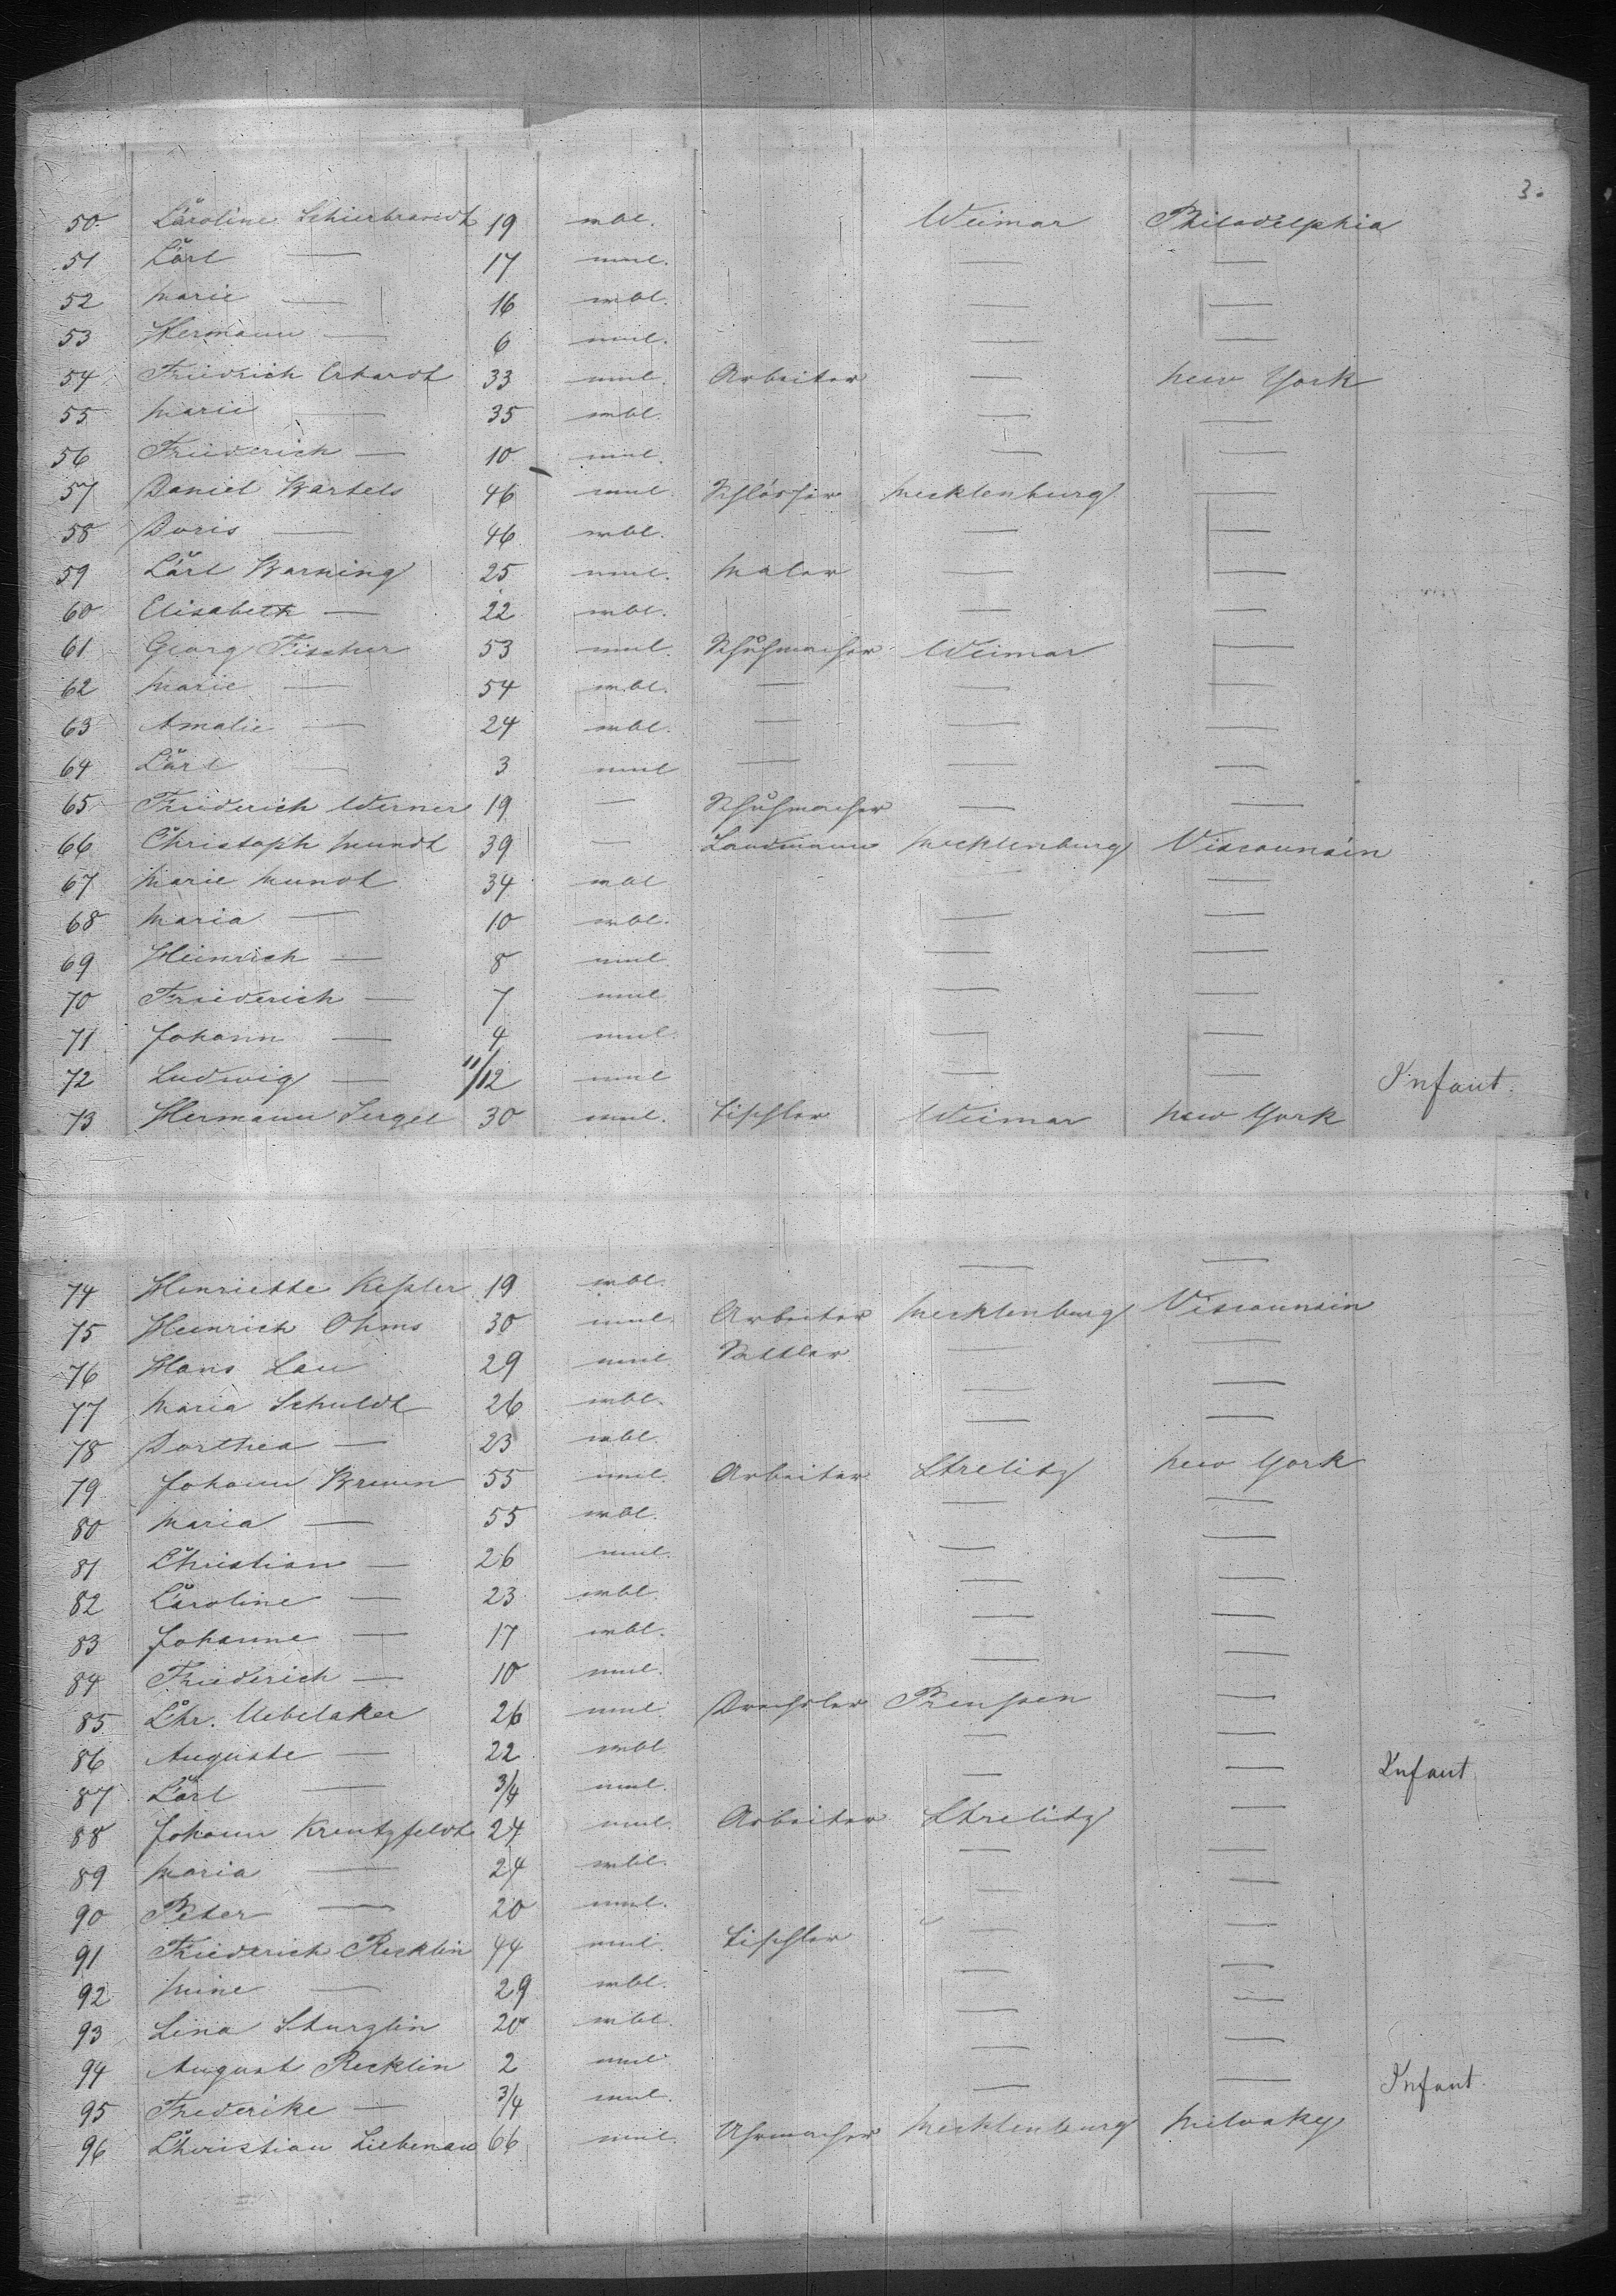 3.
50. Caroline Schierbrandt 19 wbl. Weimar Philadelphia
51 Carl — 17 mnl. — —
52 Marie — 16 wbl. — —
53 Hermann — 6 mnl. — —
54 Friedrich Erhardt 33 mnl. Arbeiter — New York
55 Marie — 35 wbl. — —
56 Friederich — 10 mnl. — —
57 Daniel Bartels 46 mnl. Schlosser Mecklenburg —
58 Doris — 46 wbl. — —
59 Carl Barning 25 mnl. Maler — —
60 Elisabeth — 22 wbl. — —
61 Georg Fischer 53 mnl. Schuhmacher Weimar —
62 Marie — 54 wbl. — — —
63 Amalie — 24 wbl. — — —
64 Carl — 3 mnl — — —
65 Friederich Werner 19 — Schuhmacher — —
66 Christoph Mundt 39 — Landmann Mecklenburg Viscounsin
67 Marie Mundt 34 wbl — —
68 Maria — 10 wbl. — —
69 Heinrich — 8 mnl — —
70 Friederich — 7 mnl — —
71 Johann — 4 mnl. — —
72 Ludwig — 11/12 mnl — — Infant.
73 Hermann Sergel 30 mnl. Tischler Weimar New York
74 Henriette Keßler 19 wbl. — —
75 Heinrich Ohms 30 mnl. Arbeiter Mecklenburg Viscounsin
76 Hans Lau 29 mnl Sattler — —
77 Maria Schuldt 26 wbl. — —
78 Dorthea — 23 wbl. — —
79 Johann Bruun 55 mnl. Arbeiter Strelitz New York
80 Maria — 55 wbl. — —
81 Christian — 26 mnl. — —
82 Caroline — 23 wbl. — —
83 Johanne — 17 wbl. — —
84 Friederich — 10 mnl. — —
85 Chr. Uebelaker 26 mnl Drechsler Preußen —
86 Auguste — 22 wbl — —
87 Carl — 3/4 mnl. — — Infant
88 Johann Kreutzfeldt 24 mnl. Arbeiter Strelitz —
89 Maria — 24 wbl. — —
90 Peter — 20 mnl. — —
91 Friederich Recklin 44 mnl. Tischler — —
92 Mine — 29 wbl. — —
93 Lina Sturzlin 20 wbl. — —
94 August Recklin 2 mnl — —
95 Frederike — 3/4 mnl. — — Infant.
96 Christian Liebenau 66 mnl. Uhrmacher Mecklenburg Milvaky